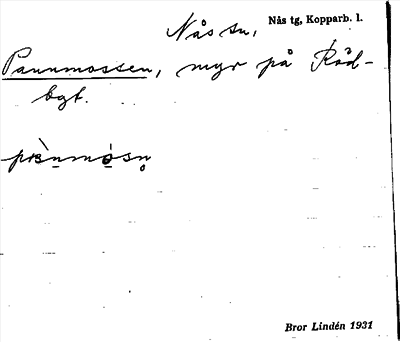 Nås sn, Nås tg, Kopparb. l.
Pannmossen, myr på Råd-
bgt.
pànmòsn̥
Bror Lindén 1931